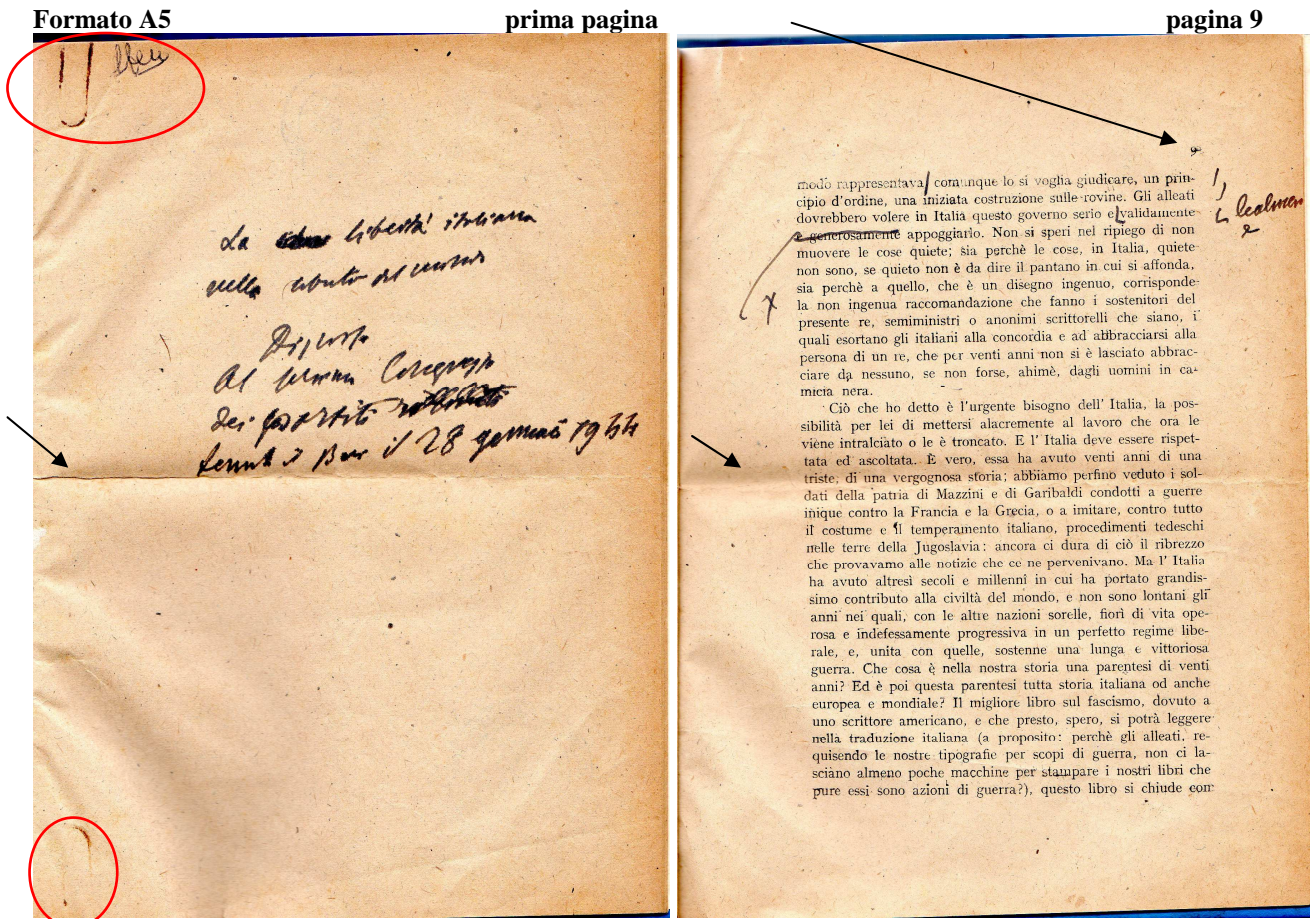 Formato A5 prima pagina pagina 9
La libertà italiana
nella libertà del mondo
Discorso
Al primo Congresso
dei partiti
tenuto a Bari il 28 gennaio 1944
9
modo rappresentava comunque lo si voglia giudicare, un prin-
cipio d'ordine, una iniziata costruzione sulle rovine. Gli alleati
dovrebbero volere in Italia questo governo serio e validamente
e generosamente appoggiarlo. Non si speri nel ripiego di non
muovere le cose quiete; sia perchè le cose, in Italia, quiete
non sono, se quieto non è da dire il pantano in cui si affonda,
sia perchè a quello, che è un disegno ingenuo, corrisponde
la non ingenua raccomandazione che fanno i sostenitori del
presente re, semiministri o anonimi scrittorelli che siano, i
quali esortano gli italiani alla concordia e ad abbracciarsi alla
persona di un re, che per venti anni non si è lasciato abbrac-
ciare da nessuno, se non forse, ahimè, dagli uomini in ca-
micia nera.
Ciò che ho detto è l'urgente bisogno dell' Italia, la pos-
sibilità per lei di mettersi alacremente al lavoro che ora le
viene intralciato o le è troncato. E l' Italia deve essere rispet-
tata ed ascoltata. È vero, essa ha avuto venti anni di una
triste, di una vergognosa storia; abbiamo perfino veduto i sol-
dati della patria di Mazzini e di Garibaldi condotti a guerre
inique contro la Francia e la Grecia, o a imitare, contro tutto
il costume e il temperamento italiano, procedimenti tedeschi
nelle terre della Jugoslavia: ancora ci dura di ciò il ribrezzo
che provavamo alle notizie che ce ne pervenivano. Ma l' Italia
ha avuto altresì secoli e millenni in cui ha portato grandis-
simo contributo alla civiltà del mondo, e non sono lontani gli
anni nei quali, con le altre nazioni sorelle, fiorì di vita ope-
rosa e indefessamente progressiva in un perfetto regime libe-
rale, e, unita con quelle, sostenne una lunga e vittoriosa
guerra. Che cosa è nella nostra storia una parentesi di venti
anni? Ed è poi questa parentesi tutta storia italiana od anche
europea e mondiale? Il migliore libro sul fascismo, dovuto a
uno scrittore americano, e che presto, spero, si potrà leggere
nella traduzione italiana (a proposito: perchè gli alleati, re-
quisendo le nostre tipografie per scopi di guerra, non ci la-
sciano almeno poche macchine per stampare i nostri libri che
pure essi sono azioni di guerra?), questo libro si chiude con